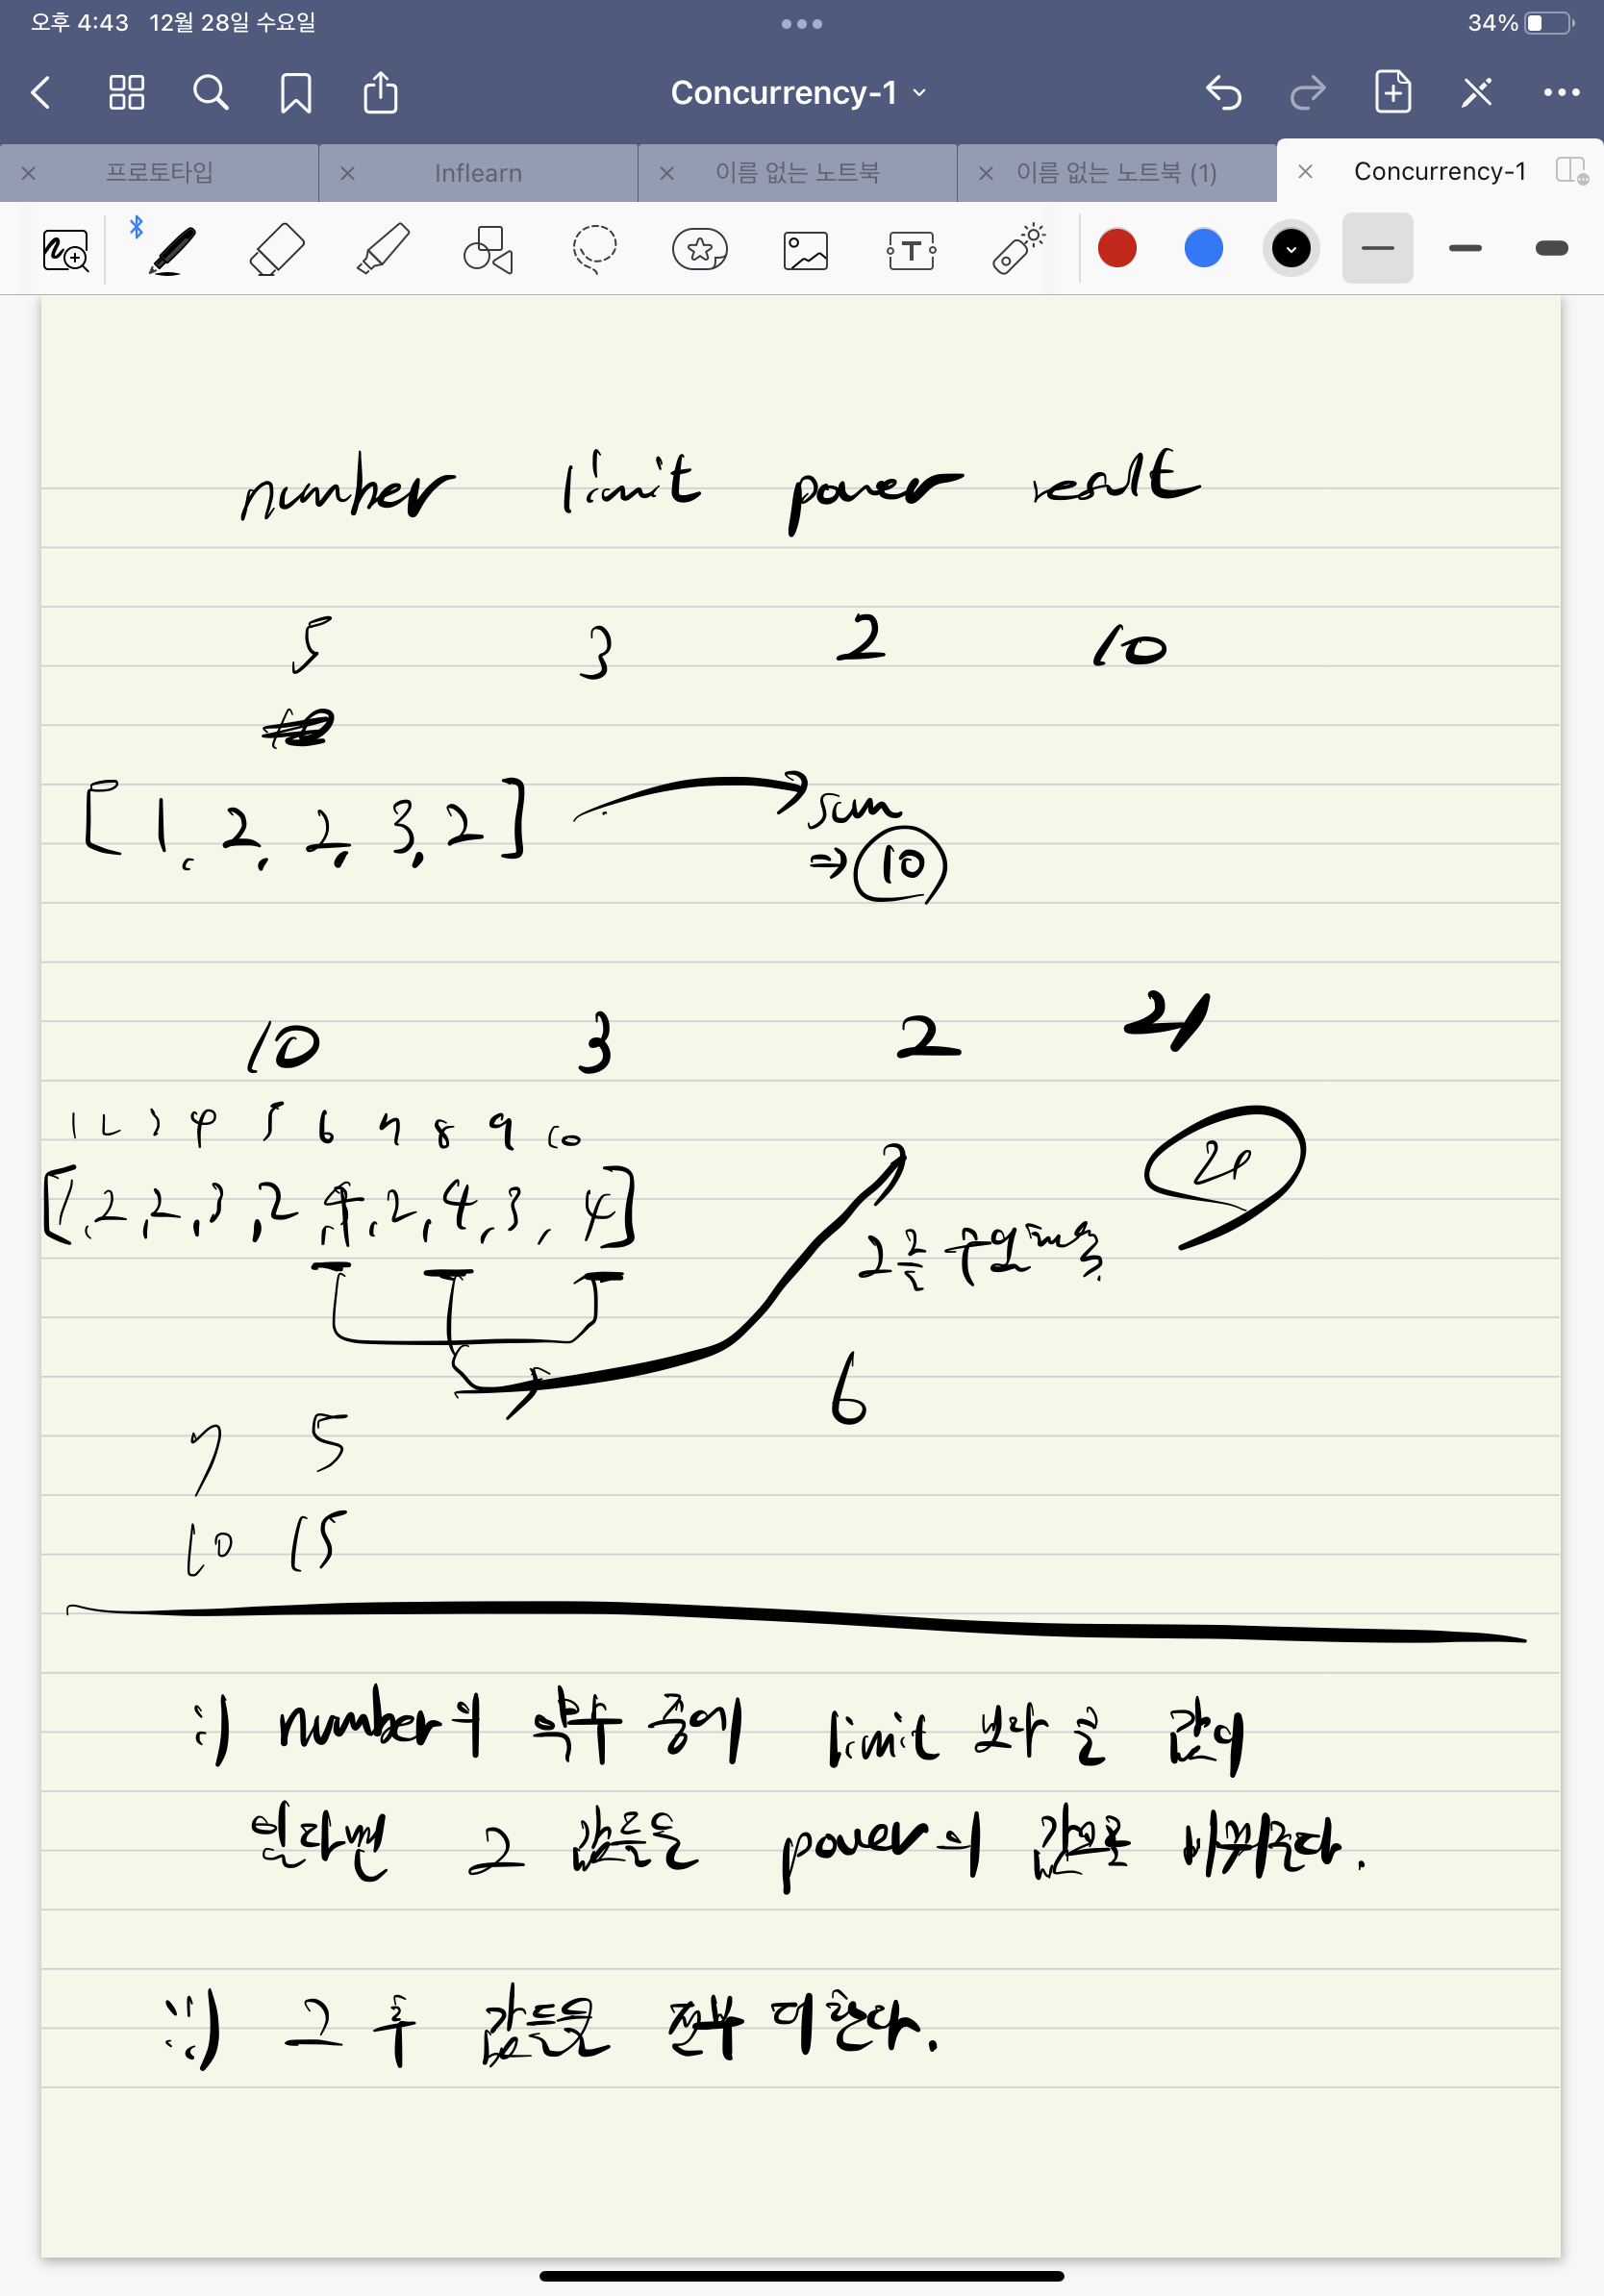 오후 4:43 12월 28일 수요일 34%
Concurrency-1
프로토타입 Inflearn 이름 없는 노트북 이름 없는 노트북 (1) Concurrency-1
T
number limit power result
5 3 2 10
[1, 2, 2, 3, 2] sum
⇒ 10
10 3 2 21
1 2 3 4 5 6 7 8 9 10
[1, 2, 2, 3, 2, 4, 2, 4, 3, 4] 21
2로
6
7 5
10 15
i) number의 약수 중에 limit 보다 큰 값이
있다면 그 값들을 power의 값으로 바꿔준다.
ii) 그 후 값들을 전부 더한다.